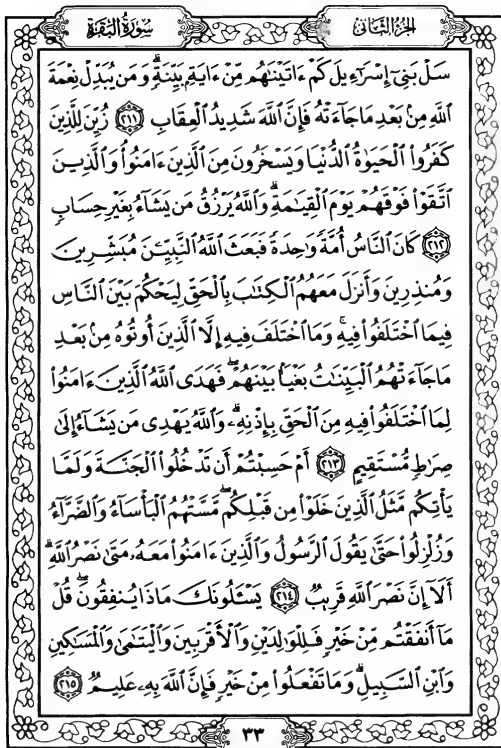 سُورَةُ البَقَرَة
الجُزْءُ الثَّانِي
سَلْ بَنِىٓ إِسْرَٰٓءِيلَ كَمْ ءَاتَيْنَٰهُم مِّنْ ءَايَةِۭ بَيِّنَةٍۗ وَمَن يُبَدِّلْ نِعْمَةَ
ٱللَّهِ مِنۢ بَعْدِ مَا جَآءَتْهُ فَإِنَّ ٱللَّهَ شَدِيدُ ٱلْعِقَابِ ٢١١ زُيِّنَ لِلَّذِينَ
كَفَرُوا۟ ٱلْحَيَوٰةُ ٱلدُّنْيَا وَيَسْخَرُونَ مِنَ ٱلَّذِينَ ءَامَنُوا۟ وَٱلَّذِينَ
ٱتَّقَوْا۟ فَوْقَهُمْ يَوْمَ ٱلْقِيَٰمَةِۗ وَٱللَّهُ يَرْزُقُ مَن يَشَآءُ بِغَيْرِ حِسَابٍ
٢١٢ كَانَ ٱلنَّاسُ أُمَّةً وَٰحِدَةً فَبَعَثَ ٱللَّهُ ٱلنَّبِيِّـۧنَ مُبَشِّرِينَ
وَمُنذِرِينَ وَأَنزَلَ مَعَهُمُ ٱلْكِتَٰبَ بِٱلْحَقِّ لِيَحْكُمَ بَيْنَ ٱلنَّاسِ
فِيمَا ٱخْتَلَفُوا۟ فِيهِۚ وَمَا ٱخْتَلَفَ فِيهِ إِلَّا ٱلَّذِينَ أُوتُوهُ مِنۢ بَعْدِ
مَا جَآءَتْهُمُ ٱلْبَيِّنَٰتُ بَغْيَۢا بَيْنَهُمْۖ فَهَدَى ٱللَّهُ ٱلَّذِينَ ءَامَنُوا۟
لِمَا ٱخْتَلَفُوا۟ فِيهِ مِنَ ٱلْحَقِّ بِإِذْنِهِۦۗ وَٱللَّهُ يَهْدِى مَن يَشَآءُ إِلَىٰ
صِرَٰطٍ مُّسْتَقِيمٍ ٢١٣ أَمْ حَسِبْتُمْ أَن تَدْخُلُوا۟ ٱلْجَنَّةَ وَلَمَّا
يَأْتِكُم مَّثَلُ ٱلَّذِينَ خَلَوْا۟ مِن قَبْلِكُمۖ مَّسَّتْهُمُ ٱلْبَأْسَآءُ وَٱلضَّرَّآءُ
وَزُلْزِلُوا۟ حَتَّىٰ يَقُولَ ٱلرَّسُولُ وَٱلَّذِينَ ءَامَنُوا۟ مَعَهُۥ مَتَىٰ نَصْرُ ٱللَّهِۗ
أَلَآ إِنَّ نَصْرَ ٱللَّهِ قَرِيبٌ ٢١٤ يَسْـَٔلُونَكَ مَاذَا يُنفِقُونَۖ قُلْ
مَآ أَنفَقْتُم مِّنْ خَيْرٍ فَلِلْوَٰلِدَيْنِ وَٱلْأَقْرَبِينَ وَٱلْيَتَٰمَىٰ وَٱلْمَسَٰكِينِ
وَٱبْنِ ٱلسَّبِيلِۗ وَمَا تَفْعَلُوا۟ مِنْ خَيْرٍ فَإِنَّ ٱللَّهَ بِهِۦ عَلِيمٌ ٢١٥
٣٣